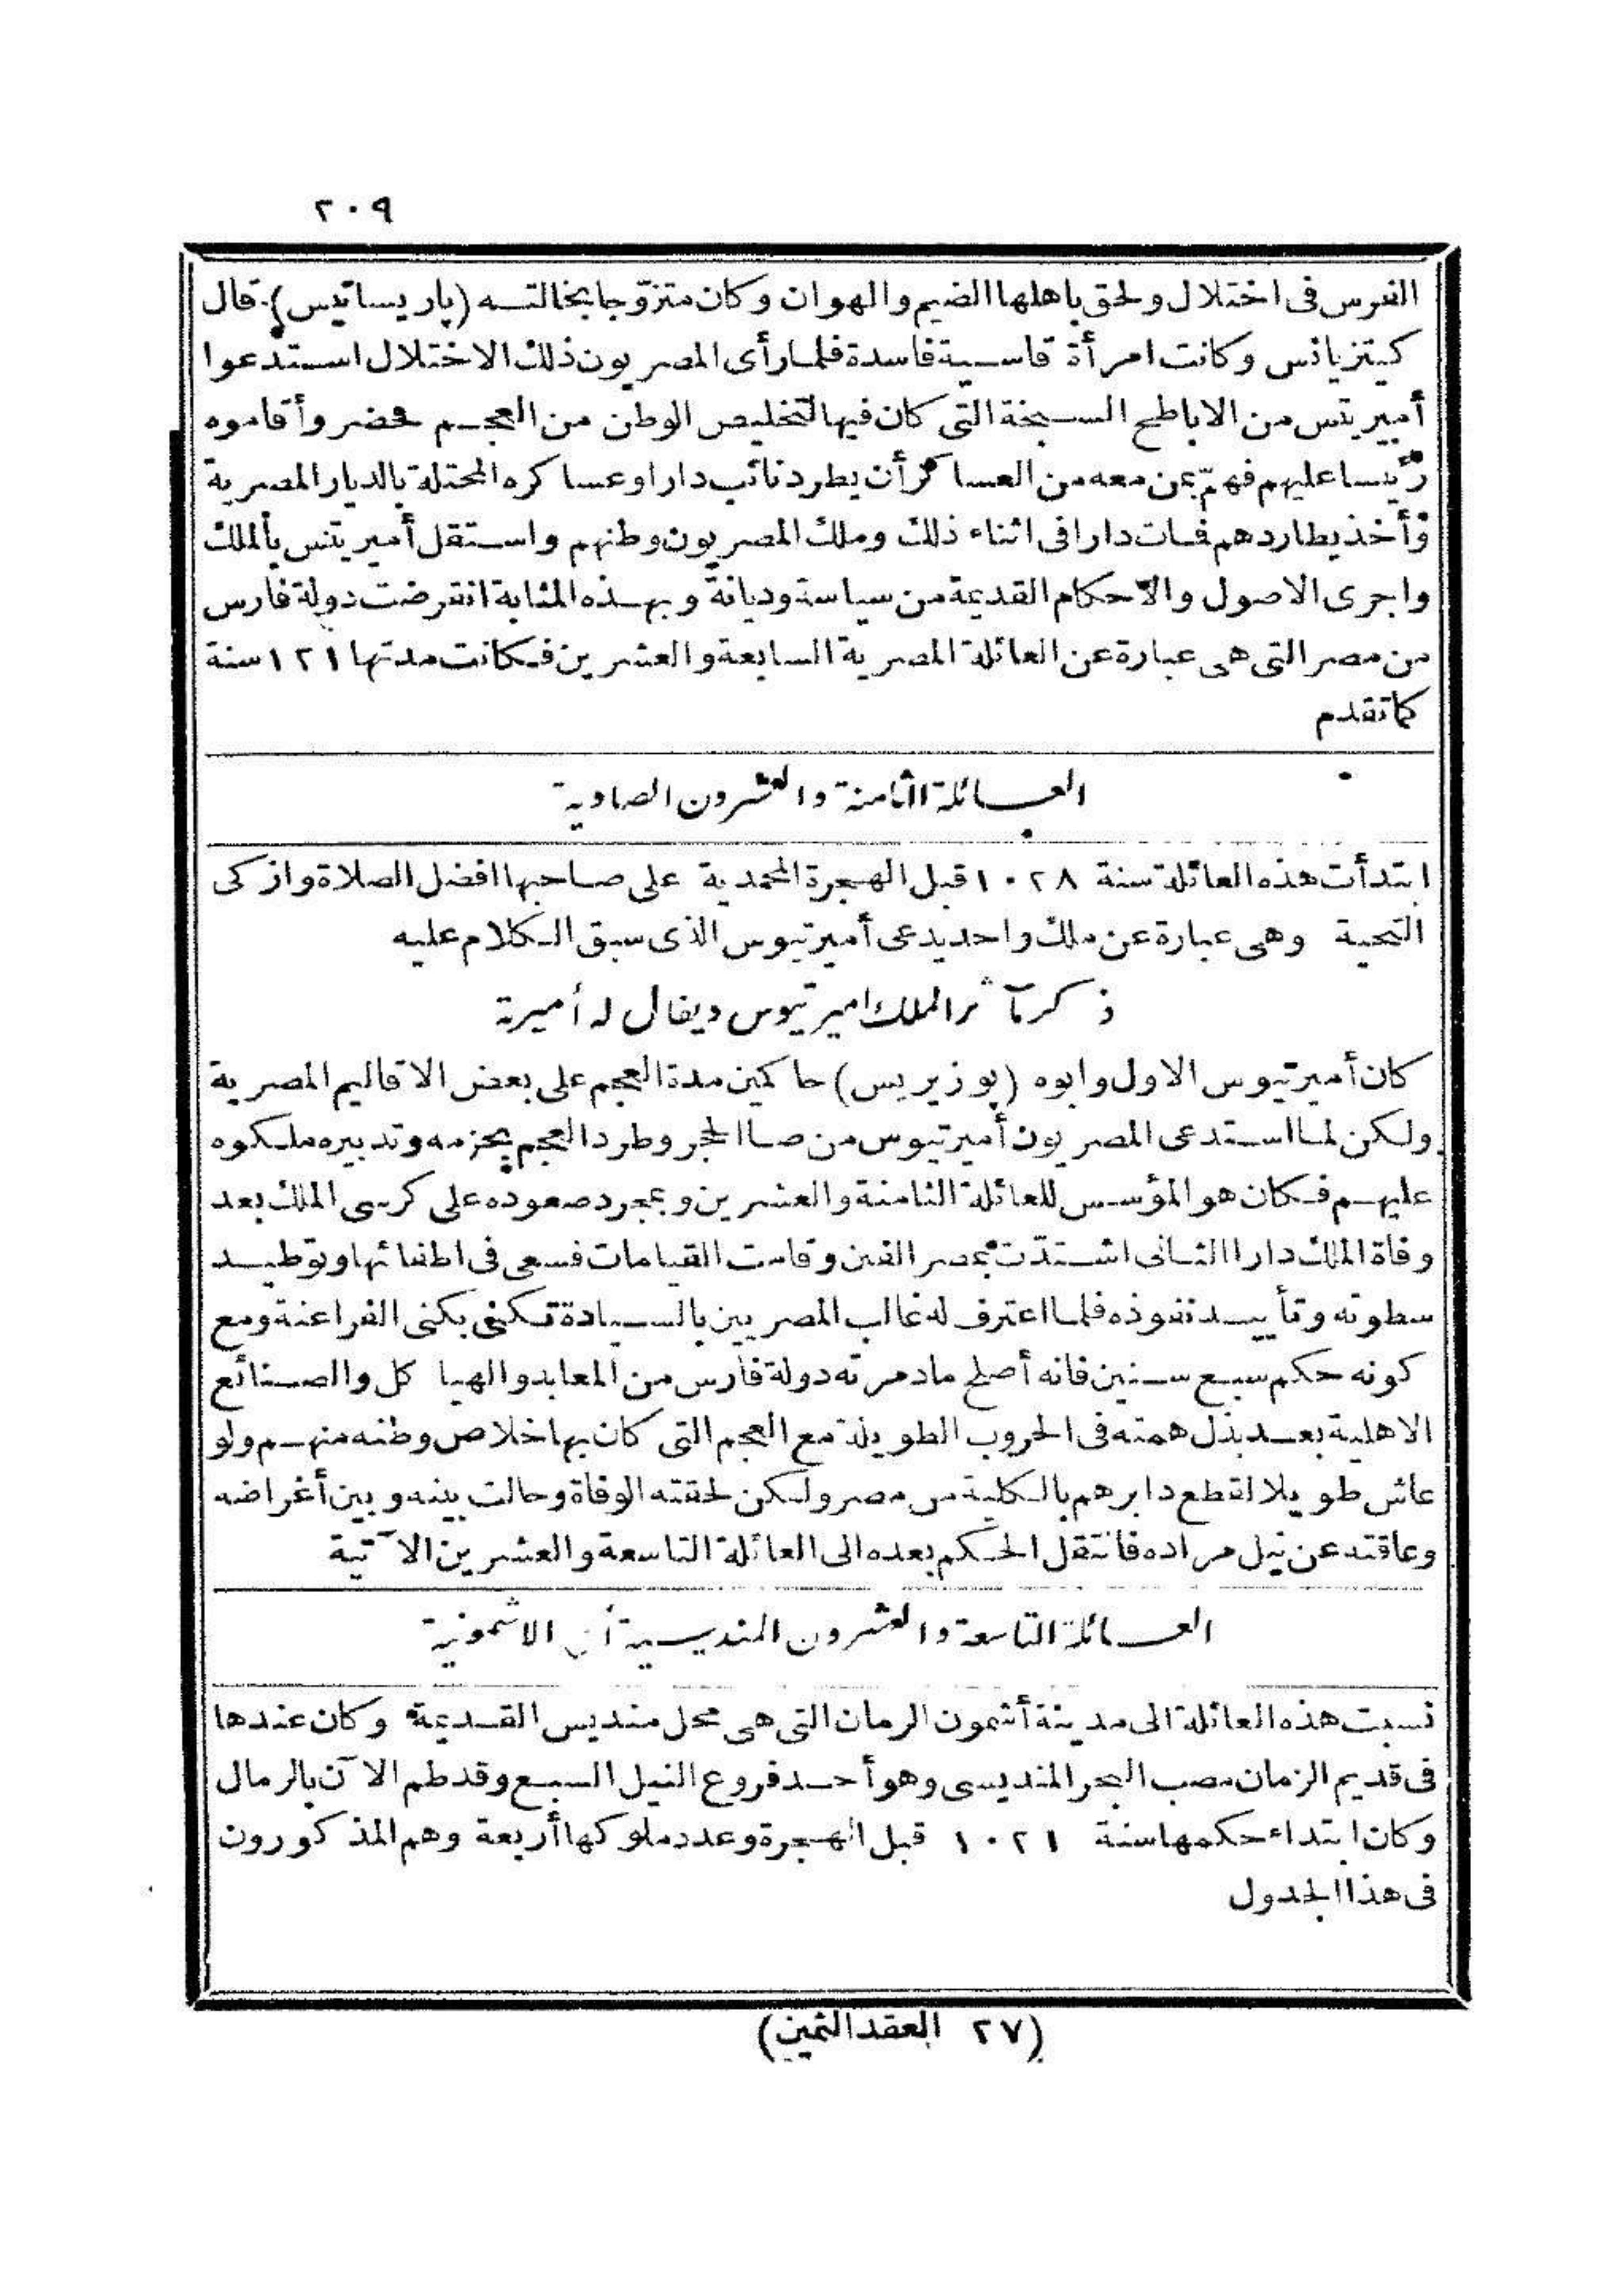 ٢٠٩
الفرس فى اختلال ولحق باهلها الضيم والهوان وكان متزوّجا بخالتــه (پاريساتيس) قال
كيتزياس وكانت امرأة قاسـية فاسدة فلمـا رأى المصريون ذلك الاختلال اسـتدعوا
أميريتس من الاباطح السـبخة التى كان فيها لتخليص الوطن من العجـم فحضر وأقاموه
رئيسا عليهم فهمّ بمن معه من العساكر أن يطرد نائب دارا وعساكره المحتلة بالديار المصرية
وأخذ يطاردهم فـات دارا فى اثناء ذلك وملك المصريون وطنهم واسـتقل أميريتس بالملك
واجرى الاصول والاحكام القديمة من سياسة وديانة وبهـذه المثابة انقرضت دولة فارس
من مصر التى هى عبارة عن العائلة المصرية السابعة والعشرين فـكانت مدتها ١٢١ سنة
كما تقدم
العــائلة الثامنة والعشرون الصاوية
ابتدأت هذه العائلة سنة ١٠٢٨ قبل الهجرة المحمدية على صاحبها افضل الصلاة وازكى
التحية وهى عبارة عن ملك واحد يدعى أميرتيوس الذى سبق الـكلام عليه
ذكر مآثر الملك اميرتيوس ويقال له أميرتة
كان أميرتيوس الاول وابوه (پوزيريس) حاكمين مدة العجم على بعض الاقاليم المصرية
ولـكن لمـا اسـتدعى المصريون أميرتيوس من صا الحجر وطرد العجم بحزمه وتدبيره ملـكوه
عليهـم فـكان هو المؤسس للعائلة الثامنة والعشرين وبمجرد صعوده على كرسى الملك بعد
وفاة الملك دارا الثـانى اشـتدّت بمصر الفتن وقامت القيامات فسعى فى اطفائها وتوطيـد
سطوته وتأييـد نفوذه فلمـا اعترف له غالب المصريين بالسـيادة تـكنى بكنى الفراعنة ومع
كونه حكم سبـع سـنين فانه أصلح ما دمرته دولة فارس من المعابد والهياكل والصـنائع
الاهلية بعـد بذل همته فى الحروب الطويلة مع العجم التى كان بها خلاص وطنه منهـم ولو
عاش طويلا لقطع دابرهم بالـكلية من مصر ولـكن لحقته الوفاة وحالت بينه وبين أغراضه
وعاقته عن نيل مراده فانتقل الحـكم بعده الى العائلة التاسعة والعشرين الآتية
العــائلة التاسعة والعشرون المنديسـية أى الاشمونية
نسبت هذه العائلة الى مدينة أشمون الرمان التى هى محل منديس القـديمة وكان عندها
فى قديم الزمان مصب البحر المنديسى وهو أحـد فروع النيل السبـع وقد طم الآن بالرمال
وكان ابتداء حكمها سنة ١٠٢١ قبل الهـجرة وعدد ملوكها أربعة وهم المذكورون
فى هذا الجدول
(٢٧ العقد الثمين)